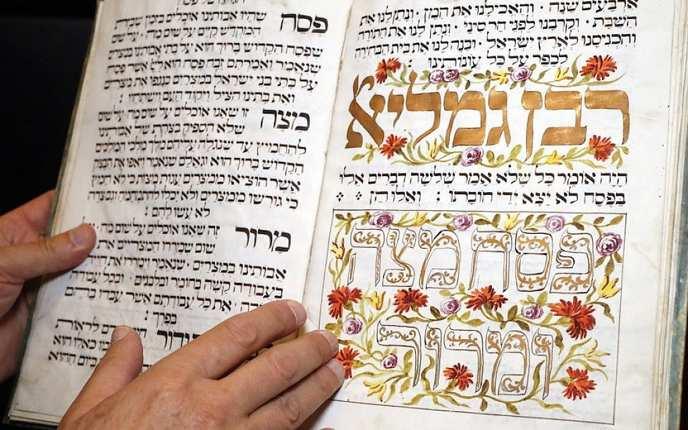 ארבעים שנה, והאכילנו את המן, ונתן לנו את
השבת, וקרבנו לפני הר סיני, ונתן לנו את התורה
והכניסנו לארץ ישראל, ובנה לנו את בית הבחירה
לכפר על כל עונותינו:
רבן גמליא
היה אומר כל שלא אמר שלשה דברים אלו
בפסח לא יצא ידי חובתו: ואלו הן:
פסח מצה
ומרור
פסח שהיו אבותינו אוכלים בזמן
המקדש קיים על שום מה, על שום
שפסח הקדוש ברוך הוא על בתי אבותינו במצרים
שנאמר ואמרתם זבח פסח הוא אשר פסח
על בתי בני ישראל במצרים בנגפו את מצרים
ואת בתינו הציל ויקוד העם וישתחוו:
מצה זו שאנו אוכלים על שום מה על שום
שלא הספיק בצקת של אבותינו
להחמיץ עד שנגלה עליהם מלך מלכי המלכים
הקדוש ברוך הוא וגאלם שנאמר ויאפו את הבצק
אשר הוציאו ממצרים עגות מצות כי לא חמץ
כי גורשו ממצרים ולא יכלו להתמהמה וגם צדה
לא עשו להם:
מרור זה שאנו אוכלים על שום מה על
שום שמררו המצריים את חיי
אבותינו במצרים, שנאמר וימררו את חייהם
בעבודה קשה בחומר ובלבנים ובכל עבודה
את כל עבודתם אשר עבדו בהם
בפרך:
ודור חייב אדם לראות
כאלו הוא
ביום ההוא